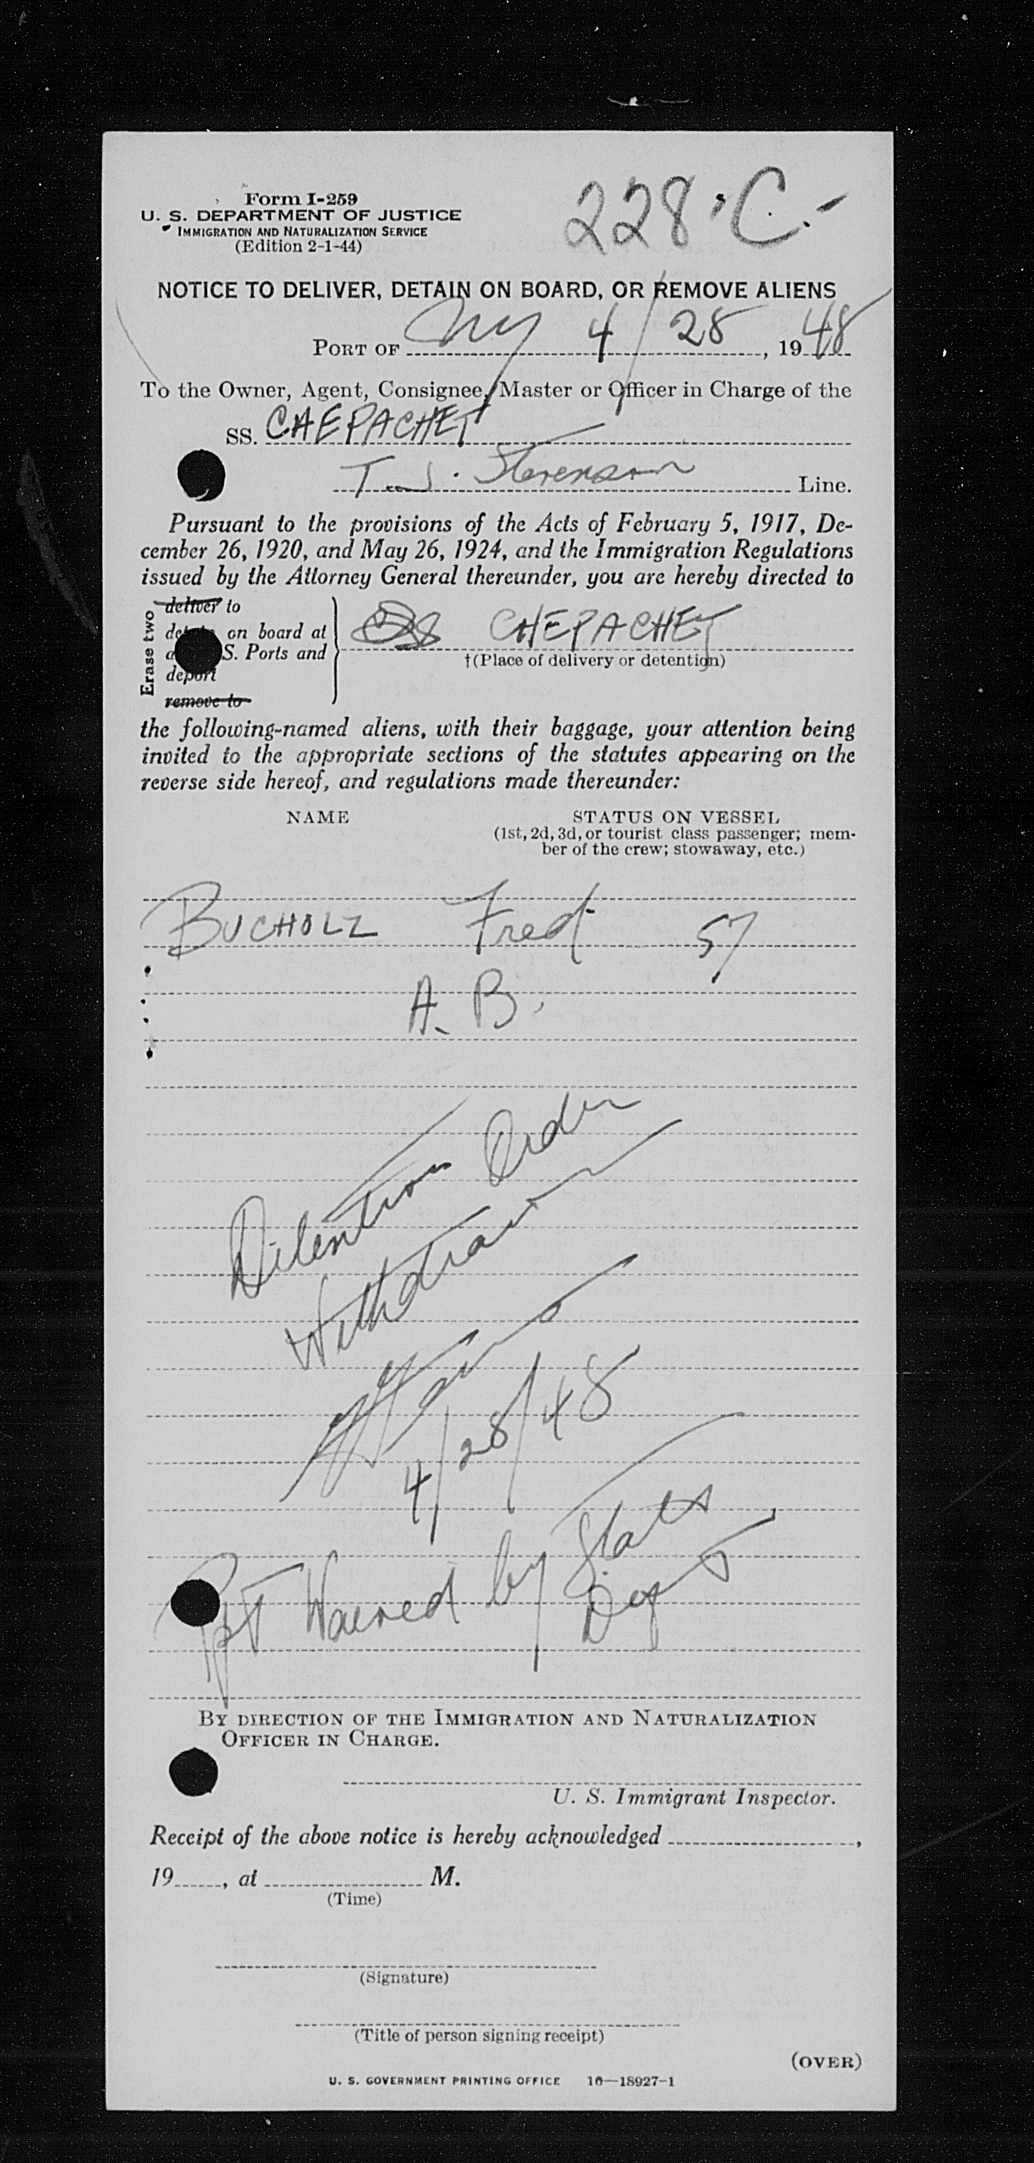 Form I-259
U. S. DEPARTMENT OF JUSTICE
IMMIGRATION AND NATURALIZATION SERVICE
(Edition 2-1-44)
228-C.-
NOTICE TO DELIVER, DETAIN ON BOARD, OR REMOVE ALIENS
PORT OF NY 4/28, 1948
To the Owner, Agent, Consignee, Master or Officer in Charge of the
SS. CHEPACHET
T. J. Stevenson Line.
Pursuant to the provisions of the Acts of February 5, 1917, De-
cember 26, 1920, and May 26, 1924, and the Immigration Regulations
issued by the Attorney General thereunder, you are hereby directed to
Erase two
deliver to
on board at
S. Ports and
deport
remove to
CHEPACHET
†(Place of delivery or detention)
the following-named aliens, with their baggage, your attention being
invited to the appropriate sections of the statutes appearing on the
reverse side hereof, and regulations made thereunder:
NAME STATUS ON VESSEL
(1st, 2d, 3d, or tourist class passenger; mem-
ber of the crew; stowaway, etc.)
BUCHOLZ Fred 57
A. B.
Detention Order
Withdrawn
4/28/48
Ppt Waived by State
Dept
BY DIRECTION OF THE IMMIGRATION AND NATURALIZATION
OFFICER IN CHARGE.
U. S. Immigrant Inspector.
Receipt of the above notice is hereby acknowledged ,
19 , at M.
(Time)
(Signature)
(Title of person signing receipt)
(OVER)
U. S. GOVERNMENT PRINTING OFFICE 16—18927-1